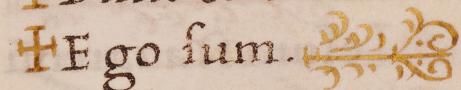 ✠Ego ſum.